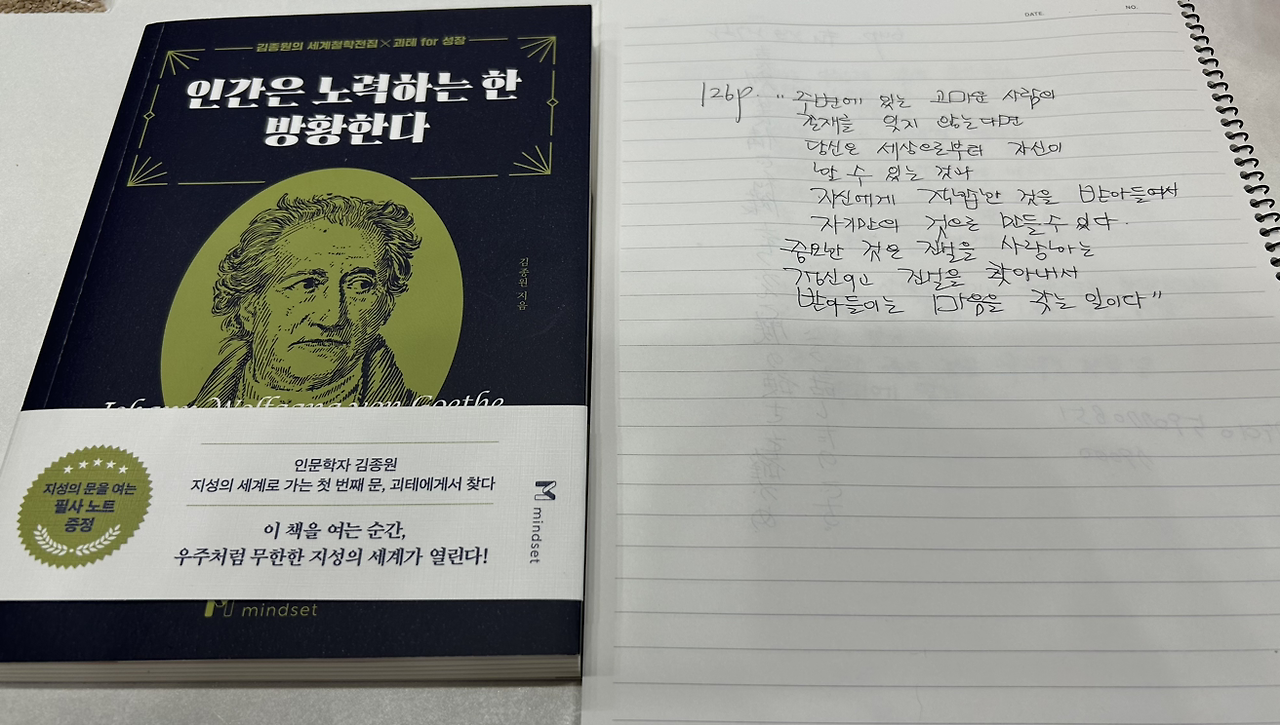 김종원의 세계철학전집×괴테 for 성장
인간은 노력하는 한
방황한다
김종원 지음
Johann Wolfgang von Goethe
인문학자 김종원
지성의 세계로 가는 첫 번째 문, 괴테에게서 찾다
이 책을 여는 순간,
우주처럼 무한한 지성의 세계가 열린다!
지성의 문을 여는
필사 노트
증정
mindset
mindset
DATE.
NO.
126p. "주변에 있는 고마운 사람의
존재를 잊지 않는다면
당신은 세상으로부터 자신이
할 수 있는 것과
자신에게 적합한 것을 받아들여서
자기만의 것으로 만들 수 있다.
중요한 것은 진실을 사랑하는
정신이고 진실을 찾아내서
받아들이는 마음을 갖는 일이다"